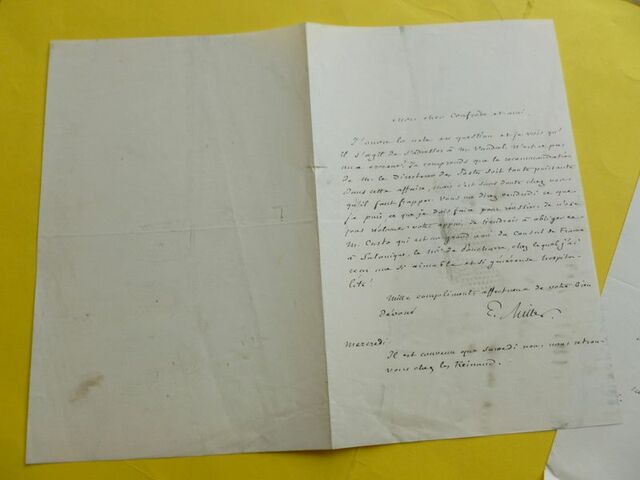 Mon cher Confrère et ami,
J'ouvre la note en question et je vois qu'
il s'agit de s'adresser à M. Vandal. N'est-ce pas
une erreur? Je comprends que la recommandation
de M. le Directeur des Postes soit toute puissante
dans cette affaire, mais c'est sans doute chez nous
qu'il faut frapper. Vous me direz vendredi ce que
je puis et ce que je dois faire pour réussir, je n'ose
pas votre appui. Je tiendrais à obliger ce
M. Custo qui est un grand ami du Consul de France
à Salonique, le Mis de chez lequel j'ai
reçu une si aimable et si généreuse hospita-
lité!
Mille compliments affectueux de votre bien
dévoué
E. Miller
Mercredi
Il est convenu que Samedi nous nous retrou-
vons chez les Reinaud.